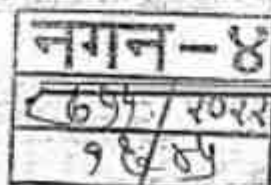 नगन-४
८७५५/२०२२
१६/४५